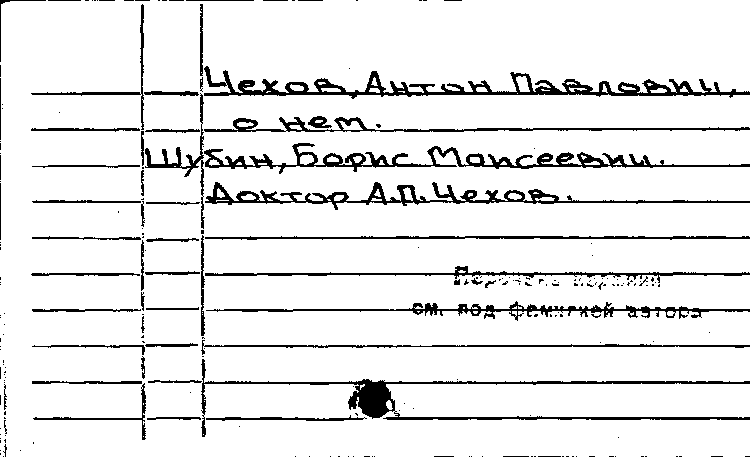 Чехов, Антон Павлович,
о нем.
Шубин, Борис Моисеевич.
Доктор А.П.Чехов.
Перечень изданий
см. под фамилией автора